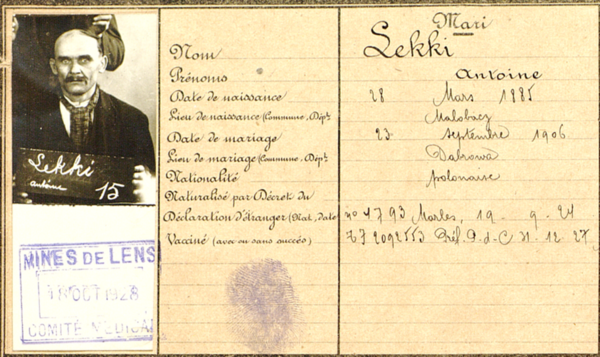 Mari
Nom Lekki
Prénoms Antoine
Date de naissance 28 Mars 1885
Lieu de naissance (Commune, Dépt) Malobacz
Date de mariage 23 septembre 1906
Lieu de mariage (Commune, Dépt) Dabrowa
Nationalité polonaise
Naturalisé par Décret du
Déclaration d'étranger (Nat, Date) no 4793 Marles, 19 - 9 - 24
Vacciné (avec ou sans succès) Préf. P-d-C 21.12 27
Lekki
antoine 15
MINES DE LENS
OCT 1928
COMITÉ MEDICAL